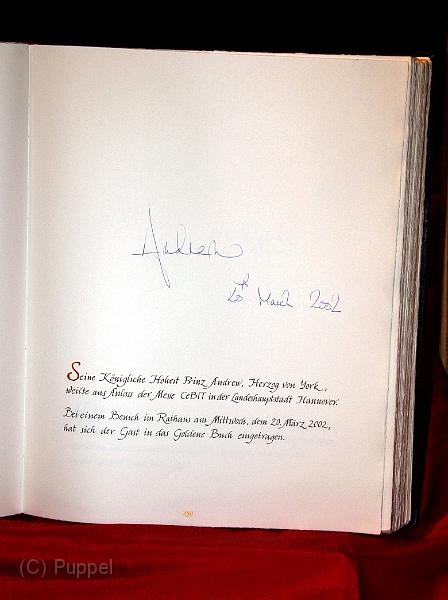 Andrew
20th March 2002
Seine Königliche Hoheit Prinz Andrew, Herzog von York,
weilte aus Anlass der Messe CeBIT in der Landeshauptstadt Hannover.
Bei einem Besuch im Rathaus am Mittwoch, dem 20. März 2002,
hat sich der Gast in das Goldene Buch eingetragen.
(C) Puppel